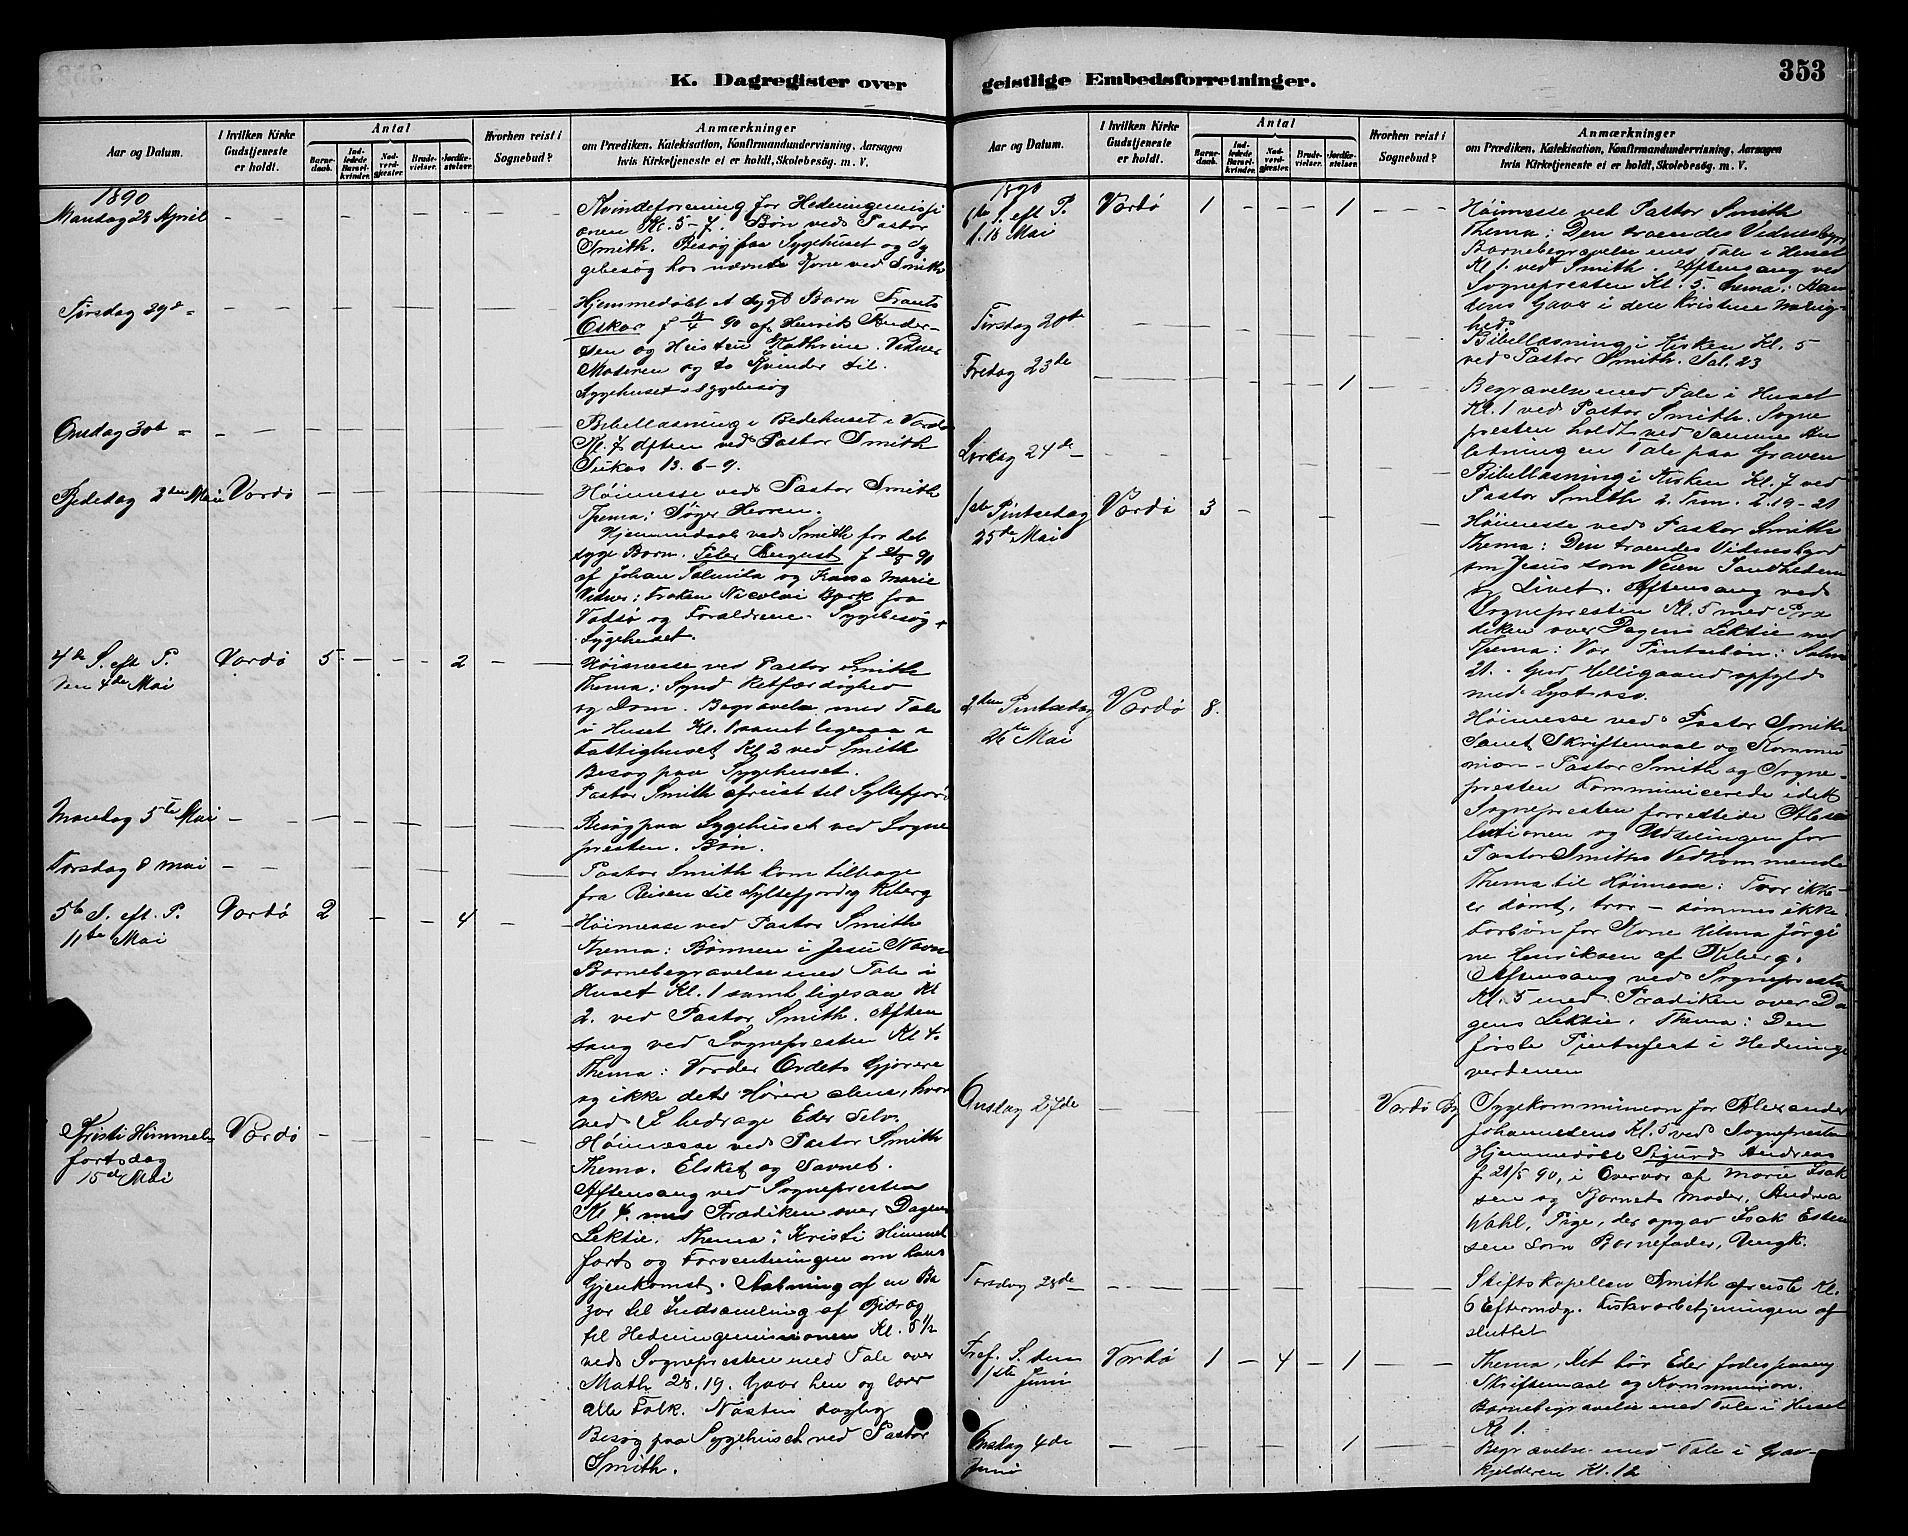 K. Dagregister over
Aar og Datum.
I hvilken Kirke Gudstjeneste er holdt.
Antal
Barnedaab.
Indledede Barselkvinder.
Nadverdgjester.
Brudevielser.
Jordfæstelser.
Hvorhen reist i Sognebud?
Anmærkninger
om Prædiken, Katekisation, Konfirmandundervisning, Aarsagen
hvis Kirketjeneste ei er holdt, Skolebesøg. m. V.
1890
Mandag 28 April
Kvindeforening for Hedningemissi
onen Kl. 5-7. Bøn ved Pastor
Smith. Besøg paa Sygehuset og Sy
gebesøg hos nævnte Kone ved Smith
Tirsdag 29d
Hjemmedøbt et sygt Barn Frants
Oskar f 90 af Henrik Ander-
sen og Hustru Kathrine. Vidner
Moderen og to Kvinder til.
Sygehuset Sygebesøg
Onsdag 30t
Bibellæsning i Bedehuset i Vardø
Kl. 7 Aften ved Pastor Smith
Lukas 13. 6-9.
Bededag 2den Mai Vardø
Høimesse ved Pastor Smith
Thema: Søger Herren.
Hjemmedaab ved Smith for det
syge Barn. Peter August f 90
af Johan og Marie
Vidner: Frøken Nicolai Bark fra
Vadsø og Forældrene. Sygebesøg
Sygehuset.
4de S. eft P. Vardø 5 2
den 4de Mai
Høimesse ved Pastor Smith
Thema: Synd Retfærdighed
og Dom. Begravelse med Tale
i Huset Kl. 1 samt ligesaa i
Fattighuset Kl 2 ved Smith
Besøg paa Sygehuset.
Pastor Smith afreist til Syltefjord
Mandag 5te Mai
Besøg paa Sygehuset ved Sogne
presten. Bøn.
Torsdag 8 Mai
Pastor Smith kom tilbage
fra Reisen til Syltefjord og Kiberg
5te S. eft. P. Vardø 2 4
11te Mai
Høimesse ved Pastor Smith
Thema: Bønnen i Jesu Navn
Barnebegravelse med Tale i
Huset Kl. 1 samt ligesaa Kl
2. ved Pastor Smith. Aften
sang ved Sognepresten Kl 4.
Thema: Vorder Ordets Gjørere
og ikke dets Hørere alene, hvor
ved I bedrage Eder Selv.
Kristi Himmel Vardø
fartsdag
15de Mai
Høimesse ved Pastor Smith
Thema. Elsket og Savnet.
Aftensang ved Sognepresten
Kl 4. med Prædiken over Dagens
Lektie. Thema: Kristi Himmel
fart og Forventningen om hans
Gjenkomst. Aabning af en Ba
zar til Indsamling af Bidrag
til Hedningemissionen Kl. 5 1/2
ved Sognepresten med Tale over
Math 28. 19. Gaar hen og lærer
alle Folk. Næsten daglig
Besøg paa Sygehuset ved Pastor
Smith.
geistlige Embedsforretninger.
353
Aar og Datum.
I hvilken Kirke Gudstjeneste er holdt.
Antal
Barnedaab.
Indledede Barselkvinder.
Nadverdgjester.
Brudevielser.
Jordfæstelser.
Hvorhen reist i Sognebud?
Anmærkninger
om Prædiken, Katekisation, Konfirmandundervisning, Aarsagen
hvis Kirketjeneste ei er holdt, Skolebesøg. m. V.
1890
6te S. eft P. Vardø 1 1
d. 18 Mai
Høimesse ved Pastor Smith
Thema: Den troendes Vidnesbyrd
Barnebegravelse med Tale i Huset
Kl 1. ved Smith. Aftensang ved
Sognepresten Kl. 5. Thema: Aan
dens Gaver i den Kristne menig-
hed.
Tirsdag 20de
Bibellæsning i Kirken Kl. 5
ved Pastor Smith. Sal. 23
Fredag 23de 1
Begravelse med Tale i Huset
Kl. 1 ved Pastor Smith. Sogne
presten holdt ved Samme An
ledning en Tale paa Graven
Lørdag 24de
Bibellæsning i Kirken Kl. 7 ved
Pastor Smith 2. Tim. 2.19-21
1ste Pintsedag Vardø 3
25de Mai
Høimesse ved Pastor Smith
Thema: Den troendes Vidnesbyrd
om Jesus som Veien Sandheden
og Livet. Aftensang ved
Sognepresten Kl. 5 med Præ
diken over Dagens Lektie med
Thema: Vor Pintsebøn: Salme
21. Gud Helligaand opfyld
med Lyst osv.
2den Pintsedag Vardø 8.
26de Mai
Høimesse ved Pastor Smith
samt Skriftemaal og Kommu
nion - Pastor Smith og Sogne-
presten kommunicerede idet
Sognepresten forrettede Abso
lutionen og Uddelingen for
Pastor Smiths Vedkommende
Thema til Høimesse: Tror ikke
er dømt, tror - dømmes ikke
Forbøn for Kone Helma Jørgi
ne Henriksen af Kiberg.
Aftensang ved Sognepresten
Kl. 5 med Prædiken over Da
gens Lektie. Thema: Den
første Pintsefest i Hedninge
verdenen
Onsdag 27de Vardø By
Sygekommunion for Alexander
Johannesens Kl. 5 ved Sognepresten
Hjemmedøbt Sigurd Andreas
f 21/5 90, i Overvær af Marie Isak
sen og Barnets Moder, Andrea
Wahl, Pige, der opgav Isak Esten
sen som Barnefader, Ungk.
Torsdag 28de
Stiftskapellan Smith afreiste Kl.
6 Eftermdg. Fiskværbetjeningen af
sluttet
Tref. S. den Vardø 1 4 1
1ste Juni
Thema. Det bør Eder fødes paany
Skriftemaal og Kommunion.
Barnebegravelse med Tale i Huset
Kl 1.
Onsdag 4de 1
Juni
Begravelse med Tale i Grav-
kjelderen Kl. 12